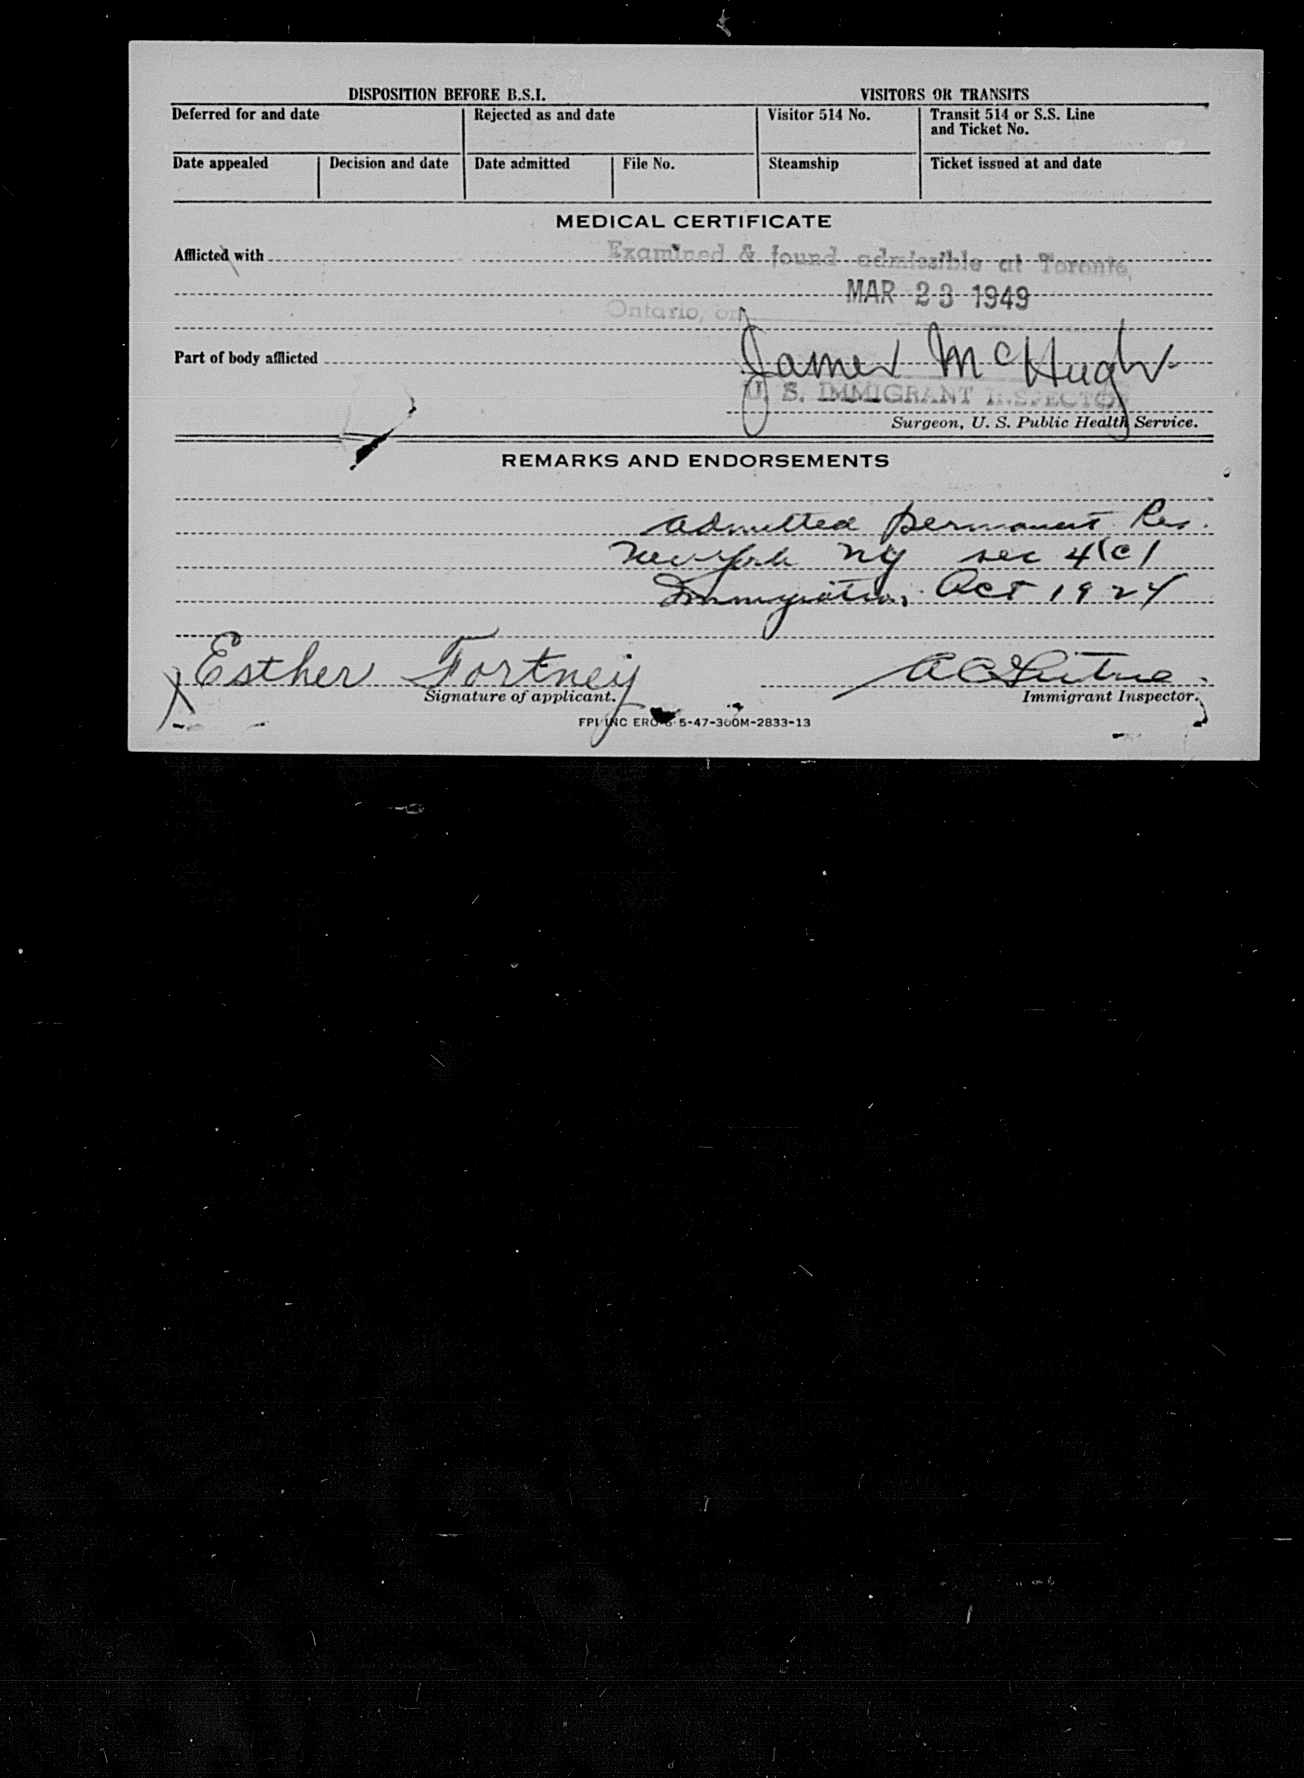 DISPOSITION BEFORE B.S.I.
VISITORS OR TRANSITS
Deferred for and date
Rejected as and date
Visitor 514 No.
Transit 514 or S.S. Line
and Ticket No.
Date appealed
Decision and date
Date admitted
File No.
Steamship
Ticket issued at and date
MEDICAL CERTIFICATE
Afflicted with
Examined & found admissible at Toronto,
MAR 23 1949
Ontario, on
Part of body afflicted
James McHugh
U. S. IMMIGRANT INSPECTOR
Surgeon, U. S. Public Health Service.
REMARKS AND ENDORSEMENTS
Admitted permanent Res.
New York NY sec 4(c)
Immigration Act 1924
X Esther Fortney
Signature of applicant.
Immigrant Inspector.
FPI INC 5-47-300M-2833-13